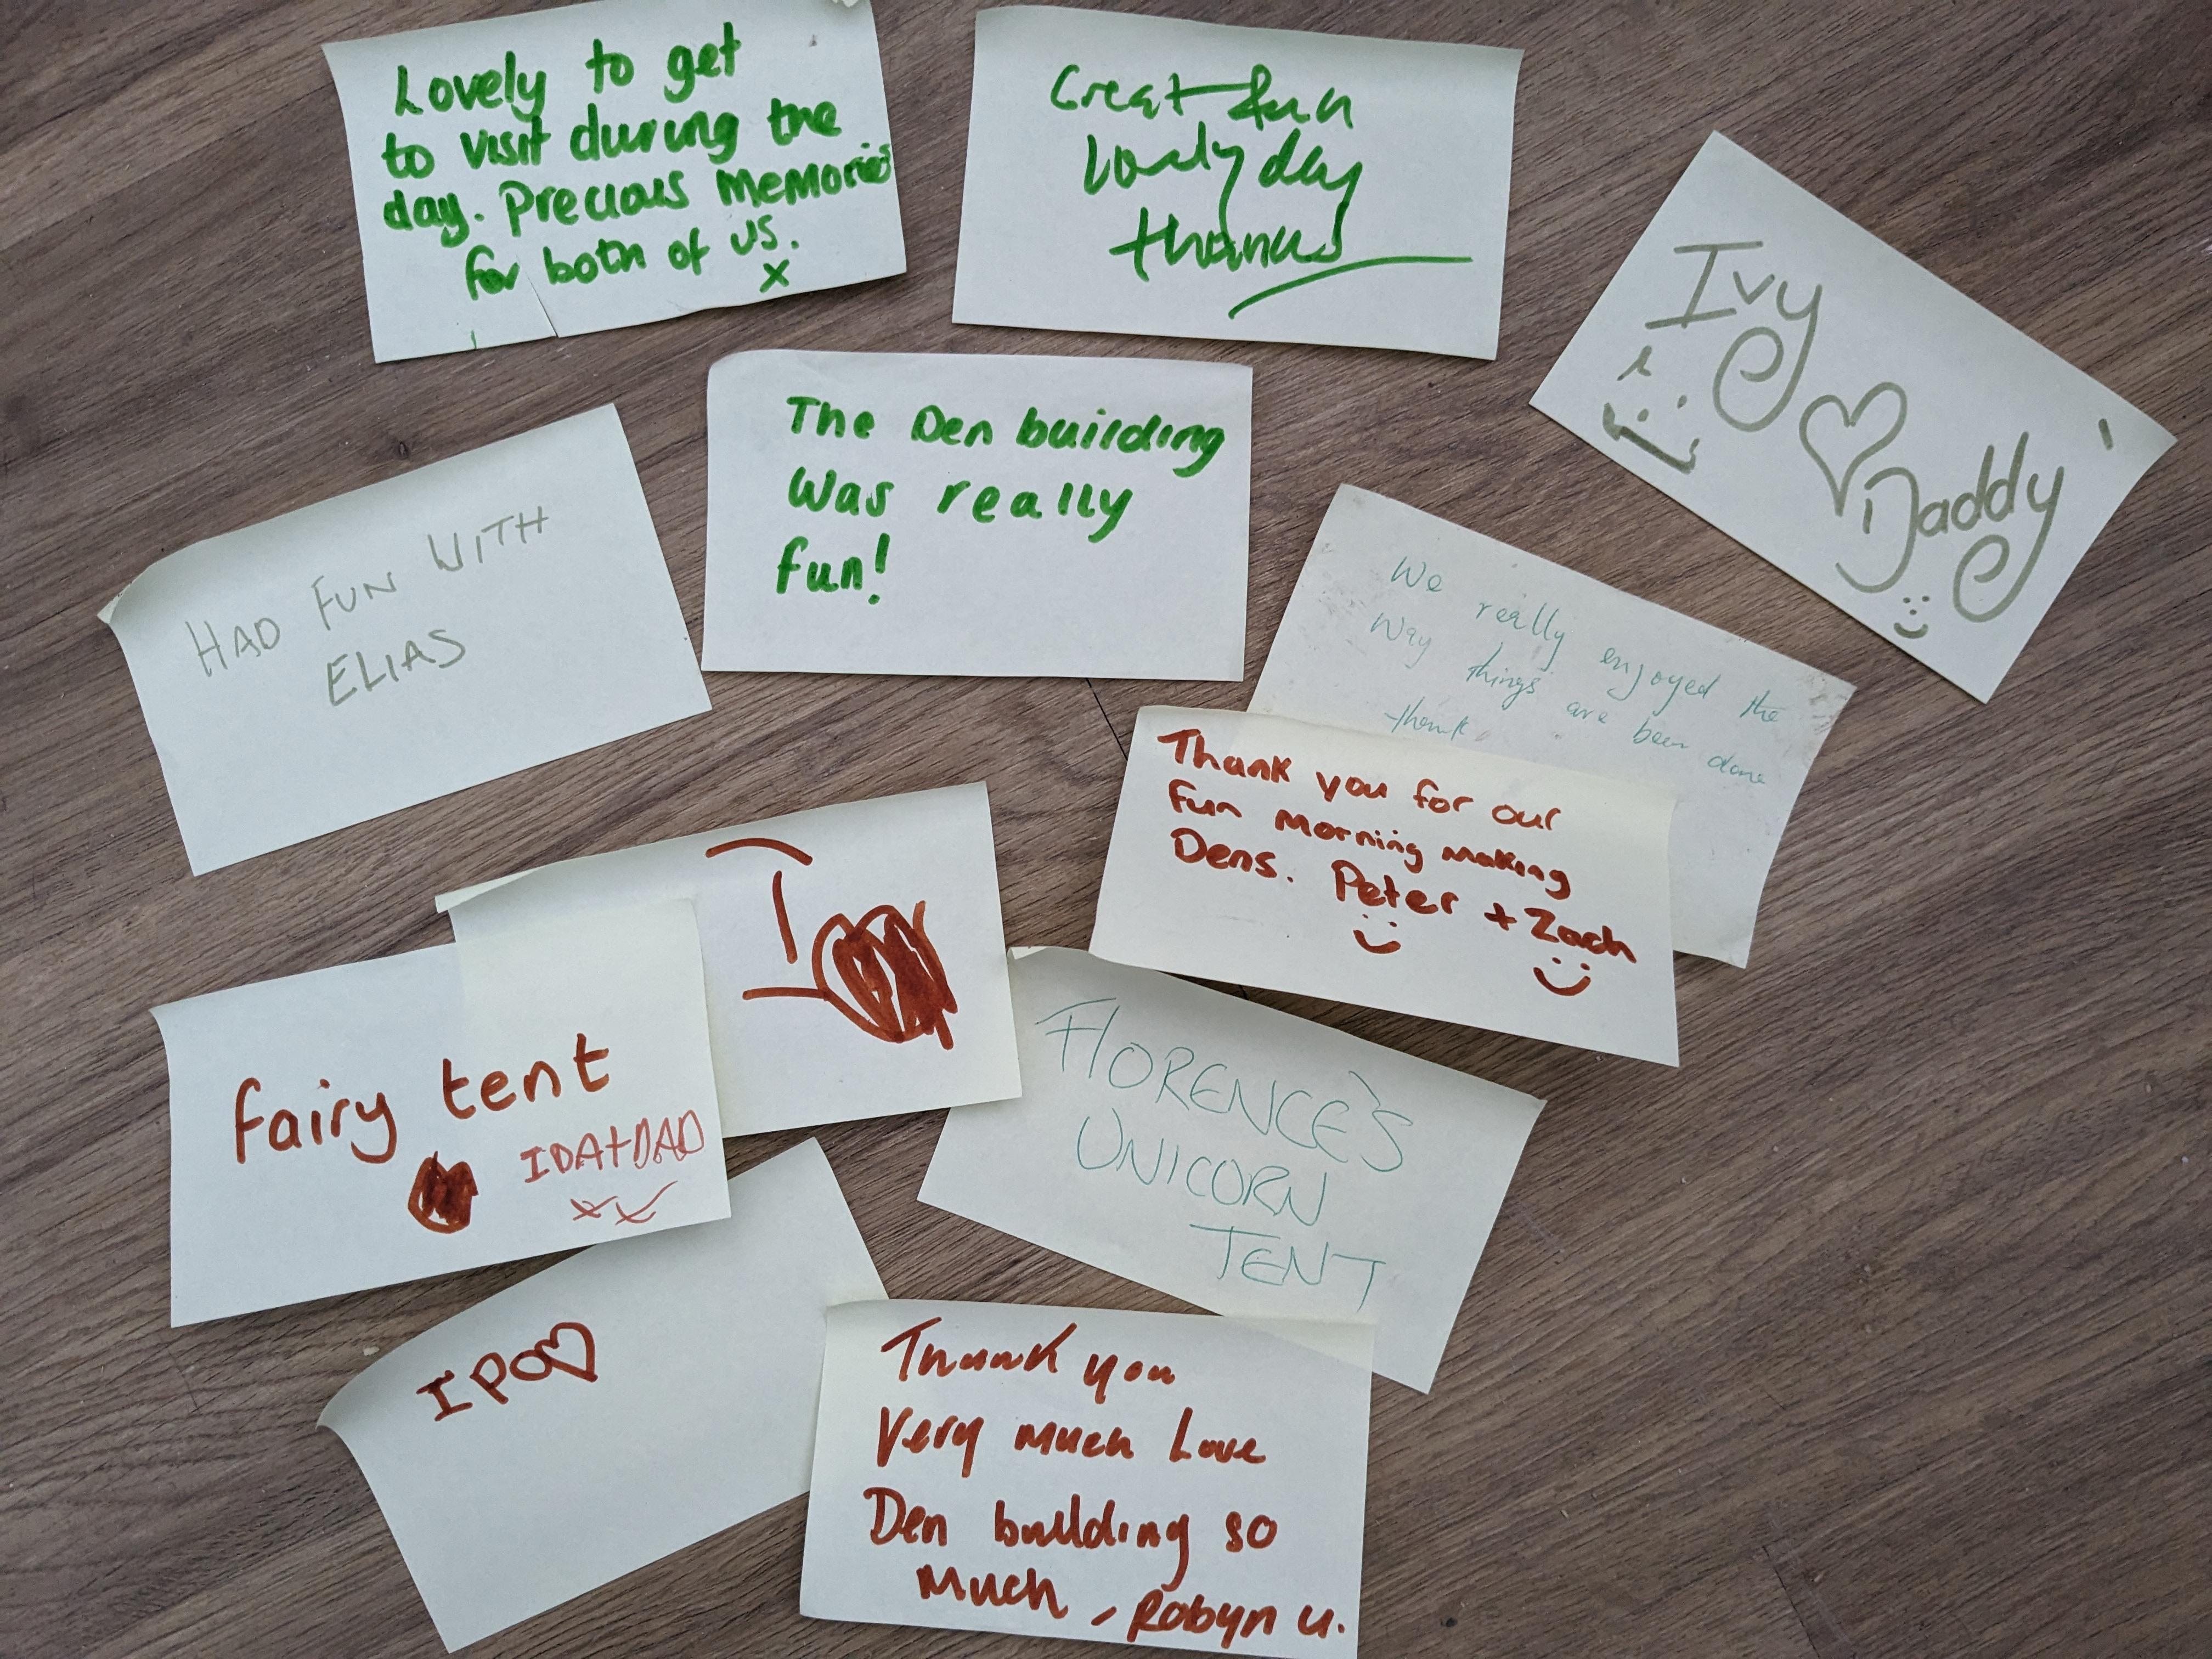 Lovely to get
to visit during the
day. Precious memories
for both of us.
x
Great fun
Lovely day
thanks
Ivy
Daddy
The Den building
was really
fun!
HAD FUN WITH
ELIAS
We really enjoyed the
way things are been done
thank
Thank you for our
fun morning making
Dens. Peter + Zach
I
fairy tent
IDA+DAD
xx
FLORENCE'S
UNICORN
TENT
IPO
Thank you
Very much Love
Den building so
much, Robyn U.